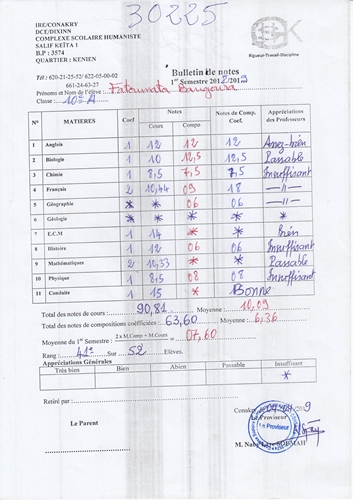 30225
IRE/CONAKRY
DCE/DIXINN
COMPLEXE SCOLAIRE HUMANISTE
SALIF KEÏTA 1
B.P : 3574
QUARTIER : KENIEN
Rigueur-Travail-Discipline
Tél : 620-21-25-52/ 622-05-00-02
661-24-63-27
Bulletin de notes
Prénoms et Nom de l'élève : Fatoumata Bangoura
Classe : 10è A
N° MATIERES Coef Notes Cours Compo Notes de Comp. Coef. Appréciations des Professeurs
1 Anglais 1 12 12 12 Assez-bien
2 Biologie 1 10 12,5 12,5 Passable
3 Chimie 1 8,5 7,5 7,5 Insuffisant
4 Français 2 10,44 09 18 —//—
5 Géographie * * 06 06 —//—
6 Géologie * * * * *
7 E.C.M 1 14 * * Bien
8 Histoire 1 12 06 06 Insuffisant
9 Mathématiques 2 10,33 * * Passable
10 Physique 1 8,5 08 08 Insuffisant
11 Conduite 1 15 * Bonne
Total des notes de cours : 90,81 Moyenne : 10,09
Total des notes de compositions coéfficiées : 63,60 Moyenne : 6,36
Moyenne du 1er Semestre : 2 x M.Comp + M.Cours = 07,60
Rang : 41è Sur 52 Elèves.
Appréciations Générales
Très bien Bien Abien Passable Insuffisant
*
Retiré par :
Conakry
Le Parent
Le Proviseur
Le Proviseur